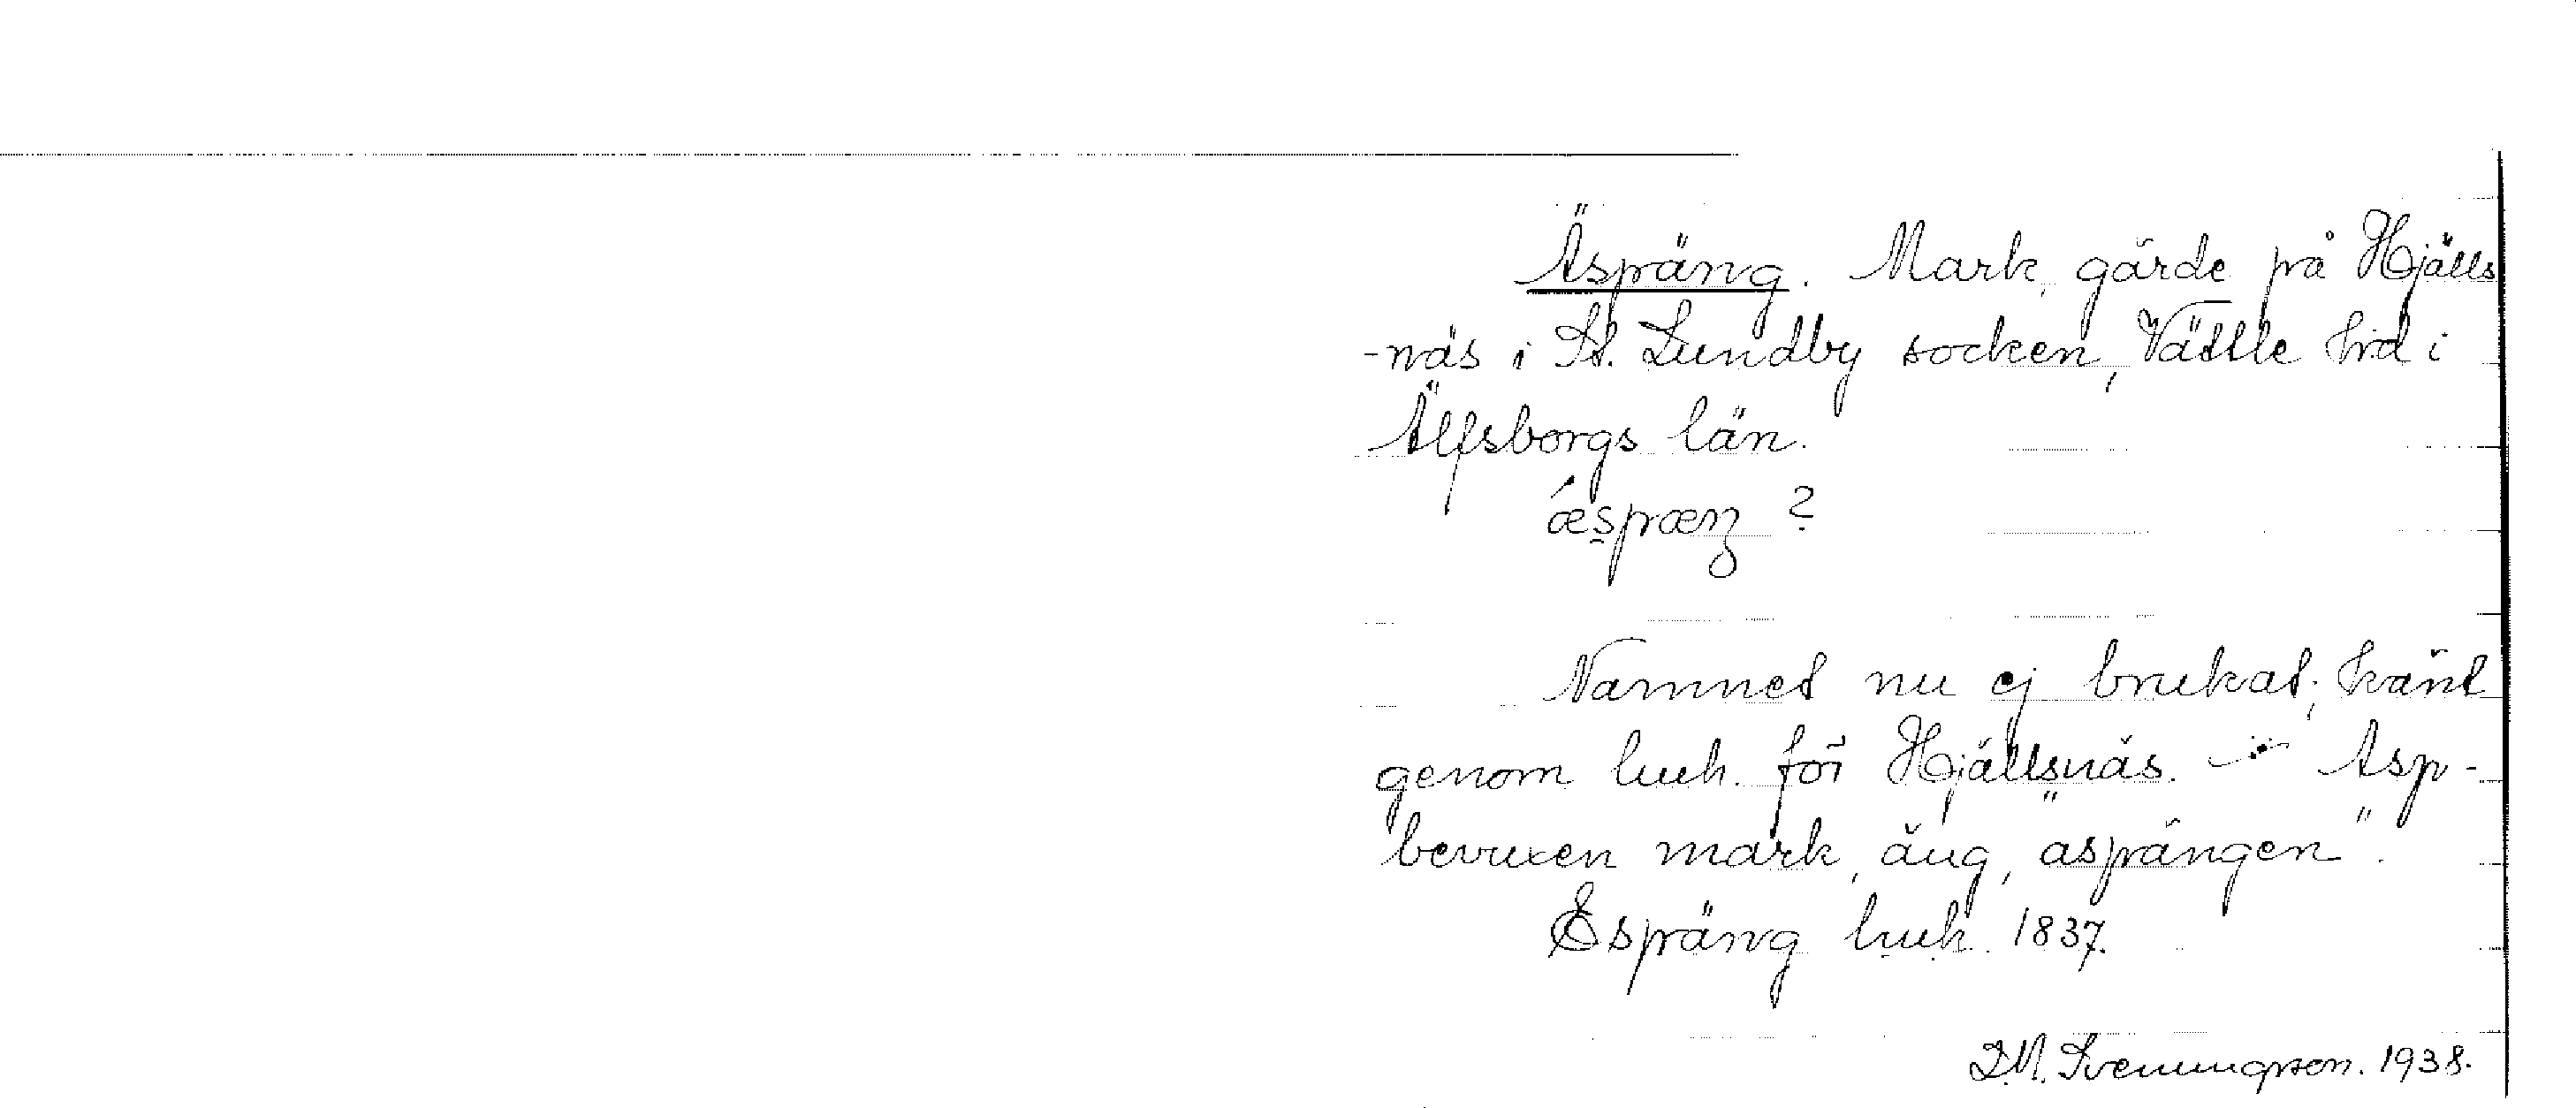 Äspräng. Mark, gärde på Hjälls
-näs i St. Lundby socken, Vättle hrd i
Älfsborgs län.
æspræŋ ?
Namnet nu ej brukat; känt
genom luh. för Hjällsnäs. Asp-
bevuxen mark, äng, "äsprängen".
Espräng luh. 1837.
I.M. Svenungsson. 1938.